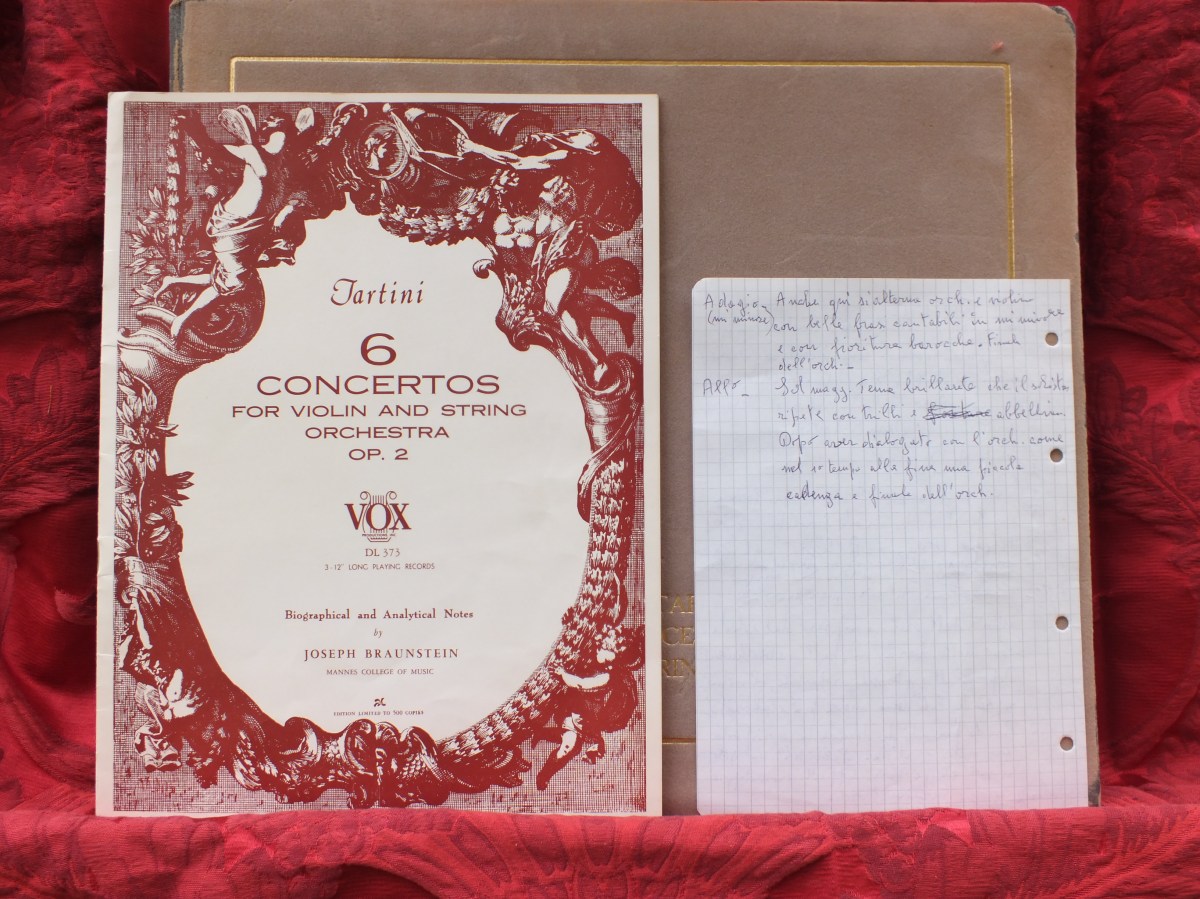 Tartini
6
CONCERTOS
FOR VIOLIN AND STRING
ORCHESTRA
OP. 2
VOX
PRODUCTIONS, INC.
DL 373
3-12" LONG PLAYING RECORDS
Biographical and Analytical Notes
by
JOSEPH BRAUNSTEIN
MANNES COLLEGE OF MUSIC
EDITION LIMITED TO 500 COPIES
TAR
CE
RIN
Adagio - Anche qui si alterna orch. e violino
(mi minore) con belle frasi cantabili in mi minore
e con fioriture barocche. Finale
dell'orch. -
All° - Sol magg. Tema brillante che il solista
ripete con trilli e abbellim.
Dopo aver dialogato con l'orch. come
nel 1° tempo alla fine una piccola
cadenza e finale dell'orch.